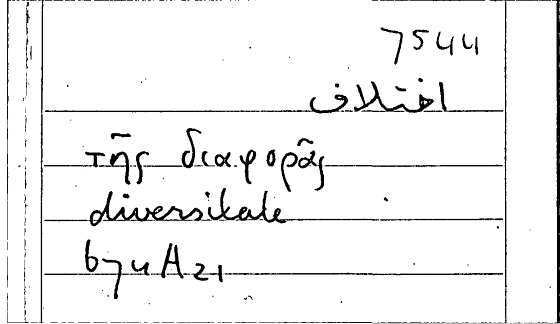 7544
اختلاف
τῆς διαφορᾶς
diversitate
674A21